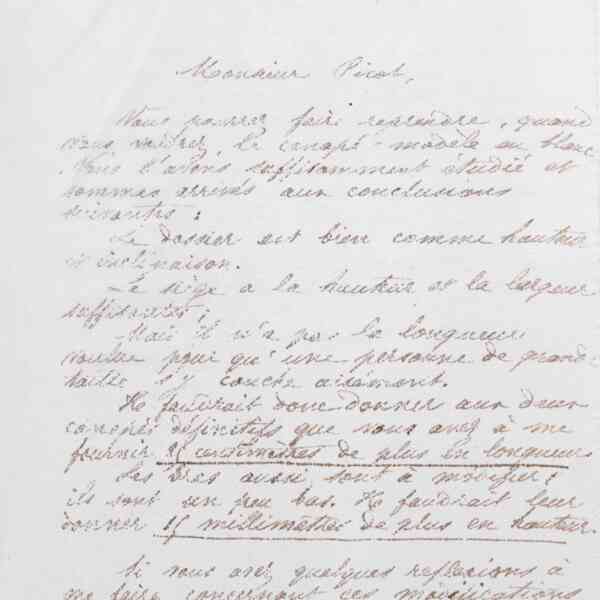 Monsieur Picot,
Vous pourrez faire reprendre, quand
vous voudrez, le canapé-modèle en blanc.
Nous l'avons suffisamment étudié et
sommes arrivés aux conclusions
suivantes :
Le dossier est bien comme hauteur
et inclinaison.
Le siège a la hauteur et la largeur
suffisantes ;
Mais il n'a pas la longueur
voulue pour qu'une personne de grande
taille s'y couche aisément.
Il faudrait donc donner aux deux
canapés définitifs que vous avez à me
fournir centimètres de plus en longueur.
Les bras aussi sont à modifier ;
ils sont un peu bas. Il faudrait leur
donner millimètres de plus en hauteur.
Si vous avez quelques reflexions à
me faire concernant ces modifications